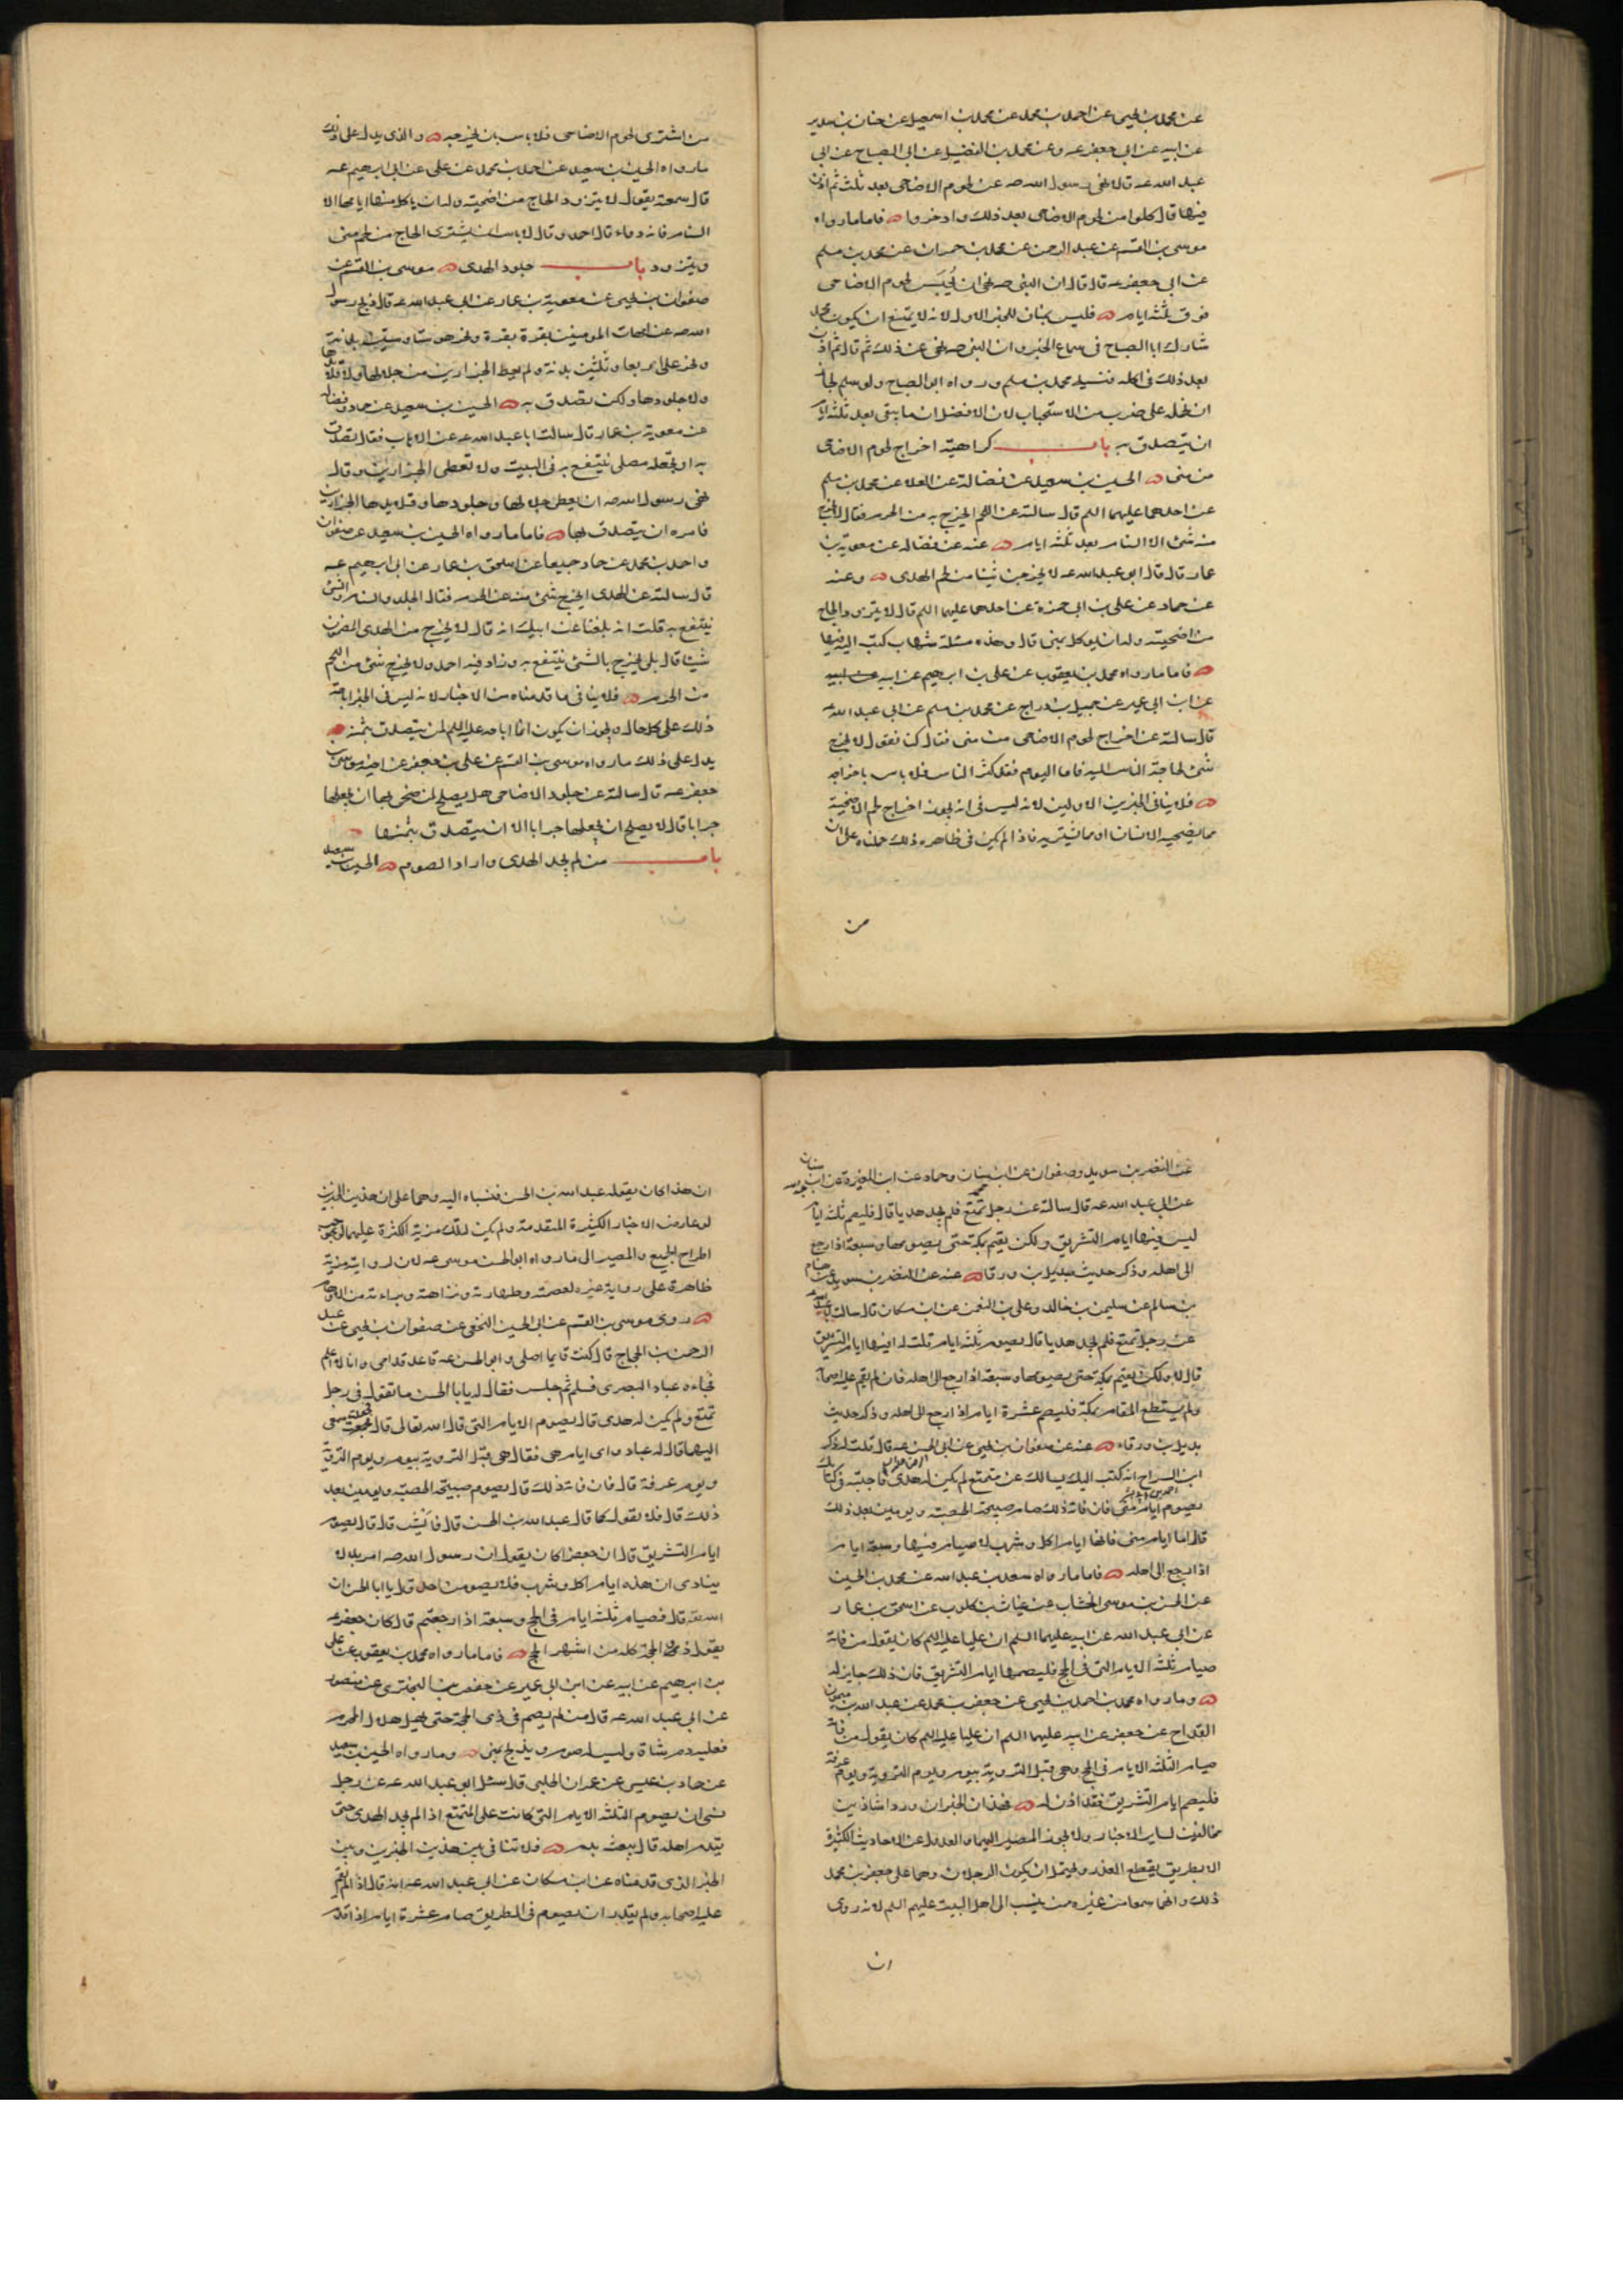 عن محمد بن يحيى عن احمد بن محمد عن محمد بن اسمعيل عن حنان بن سدير
عن ابيه عن ابى جعفر عه وعن محمد بن الفضيل عن ابى الصباح عن ابى
عبد الله عه قالا نهى رسول الله صه عن لحوم الاضاحى بعد ثلث ثم اذن
فيها قال كلوا من لحوم الاضاحى بعد ذلك وادخروا فاما ما رواه
موسى بن القسم عن عبد الرحمن عن محمد بن حمران عن محمد بن مسلم
عن ابى جعفر عه قال قال ان النبى صه نهى ان يُحبَس لحوم الاضاحى
فوق ثلثة ايام فليس بمناف للخبر الاول لانه لا يمتنع ان يكون محمد
شارك ابا الصباح فى سماع الخبر وان النبى صه نهى عن ذلك ثم قال ثم اذن
بعد ذلك فى اكله فنسيه محمد بن مسلم ورواه ابو الصباح ولو سلم لجاز
ان نحمله على ضرب من الاستحباب لان الافضل ان ما يبقى بعد ثلثة ايام
ان يتصدق به باب كراهية اخراج لحوم الاضاحى
من منى الحسين بن سعيد عن فضالة عن العلا عن محمد بن مسلم
عن احدهما عليهما السلم قال سالته عن اللحم ايخرج به من الحرم فقال لا يخرج
منه شئ الا السنام بعد ثلثه ايام عنه عن فضاله عن معوية بن
عمار قال قال ابو عبد الله عه لا يخرجن شيئا من لحم الهدى وعنه
عن حماد عن على بن ابى حمزة عن احدهما عليهما السلم قال لا يتزود الحاج
من اضحيته وله ان ياكل بمنى قال وهذه مسئلة شهاب كتب اليه فيها
فاما ما رواه محمد بن يعقوب عن على بن ابرهيم عن ابيه
عن ابن ابى عمير عن جميل بن دراج عن محمد بن مسلم عن ابى عبد الله عه
قال سالته عن اخراج لحوم الاضاحى من منى فقال كنا نقول لا يخرج
شئ لحاجة الناس اليه فاما اليوم فقد كثر الناس فلا باس باخراجه
فلا ينافى الخبرين الاولين لانه ليس فى انه يجوز اخراج لحم الاضحية
مما يضحيه الانسان او مما يشتريه فاذا لم يكن فى ظاهره ذلك حملناه على ان
من
من اشترى لحوم الاضاحى فلا باس بان يخرجه والذى يدل على ذلك
ما رواه الحسين بن سعيد عن احمد بن محمد عن على عن ابى ابرهيم عه
قال سمعته يقول لا يتزود الحاج من اضحيته وله ان ياكل منها ايامها الا
السنام فانه دواء قال احمد وقال لا باس ان يشترى الحاج من لحم منى
ويتزود باب جلود الهدى موسى بن القسم عن
صفوان بن يحيى عن معوية بن عمار عن ابى عبد الله عه قال ذبح رسول
الله صه عن امهات المومنين بقرة بقرة ونحر هو ستا وستين بدنة
ونحر على اربعا وثلثين بدنة ولم يعط الجزارين من جلالها ولا قلائدها
ولا جلودها ولكن تصدق به الحسين بن سعيد عن حماد وفضاله
عن معوية بن عمار قال سالت ابا عبد الله عه عن الاهاب فقال تصدق
به او تجعله مصلى ينتفع به فى البيت ولا تعطى الجزارين وقال
نهى رسول الله صه ان يعطى جلالها وجلودها وقلايدها الجزارين
فامره ان يتصدق بها فاما ما رواه الحسين بن سعيد عن صفوان
واحمد بن محمد عن حماد جميعا عن اسحق بن عمار عن ابى ابرهيم عه
قال سالته عن الهدى ايخرج شئ منه عن الحرم فقال الجلد والسنام والشئ
ينتفع به قلت انه بلغنا عن ابيك انه قال لا يخرج من الهدى المضمون
شيئا قال بلى يخرج بالشئ ينتفع به وزاد فيه احمد ولا يخرج شئ من اللحم
من الحرم فلا ينافى ما قدمناه من الاخبار لانه ليس فى الخبر اباحة
ذلك على كل حال ويجوز ان يكون انما اباحه عليه السلم لمن يتصدق بثمنه
يدل على ذلك ما رواه موسى بن القسم عن على بن جعفر عن اخيه موسى بن
جعفر عه قال سالته عن جلود الاضاحى هل يصلح لمن ضحى بها ان يجعلها
جرابا قال لا يصلح ان يجعلها جرابا الا ان يتصدق بثمنها
باب من لم يجد الهدى واراد الصوم الحسين بن سعيد
عن النضر بن سويد وصفوان عن ابن سنان وحماد عن ابن المغيرة عن ابن سنان
عن ابى عبد الله عه قال سالته عن رجل تمتع فلم يجد هديا قال فليصم ثلثة ايام
ليس فيها ايام التشريق ولكن يقيم بمكة حتى يصومها وسبعة اذا رجع
الى اهله وذكر حديث بديل بن ورقا عنه عن النضر بن سويد عن هشام
بن سالم عن سليمن بن خالد وعلى بن النعمن عن ابن مسكان قال سالت ابا عبد الله عه
عن رجل تمتع فلم يجد هديا قال يصوم ثلثة ايام قلت له افيها ايام التشريق
قال لا ولكن يقيم بمكة حتى يصومها وسبعة اذا رجع الى اهله فان لم يقم عليه اصحابه
ولم يستطع المقام بمكة فليصم عشرة ايام اذا رجع الى اهله وذكر حديث
بديل بن ورقاء عنه عن صفوان بن يحيى عن ابى الحسن عه قال قلت له ذكر
ابن السراج انه كتب اليك يسالك عن متمتع لم يكن له هدى فاجبته فى كتابك
يصوم ايام منى فان فاته ذلك صام صبيحة الحصبة ويومين بعد ذلك
قال اما ايام منى فانها ايام اكل وشرب لا صيام فيها وسبعة ايام
اذا رجع الى اهله فاما ما رواه سعد بن عبد الله عن محمد بن الحسين
عن الحسن بن موسى الخشاب عن غياث بن كلوب عن اسحق بن عمار
عن ابى عبد الله عن ابيه عليهما السلم ان عليا عليه السلم كان يقول من فاته
صيام ثلثة الايام التى فى الحج فليصمها ايام التشريق فان ذلك جايز له
وما رواه محمد بن احمد بن يحيى عن جعفر بن محمد عن عبد الله بن ميمون
القداح عن جعفر عن ابيه عليهما السلم ان عليا عليه السلم كان يقول من فاته
صيام الثلثة الايام فى الحج وهى قبل التروية بيوم ويوم التروية ويوم عرفة
فليصم ايام التشريق فقد اذن له فهذان الخبران وردا شاذين
مخالفين لساير الاخبار ولا يجوز المصير اليهما والعدول عن الاحاديث الكثيرة
الا بطريق يقطع العذر ويحتمل ان يكون الرجلان وهما على جعفر بن محمد
ذلك وانهما سمعا من غيره ممن ينسب الى اهل البيت عليهم السلم لانه روى
ان
ان هذا كان يقوله عبد الله بن الحسن فنسباه اليه وهما على ان هذين الخبرين
لو عارضا الاخبار الكثيرة المتقدمة ولم يكن لتلك مزية الكثرة عليهما لوجب
اطراح الجميع والمصير الى ما رواه ابو الحسن موسى عه لان لروايته مزية
ظاهرة على رواية غيره لعصمته وطهارته ونزاهته وبراءته من الاوهام
روى موسى بن القسم عن ابى الحسين النخعى عن صفوان بن يحيى عن عبد
الرحمن بن الحجاج قال كنت قايما اصلى وابو الحسن عه قاعد قدامى وانا لا اعلم
فجاءه عباد البصرى فسلم ثم جلس فقال له يابا الحسن ما تقول فى رجل
تمتع ولم يكن له هدى قال يصوم الايام التى قال الله تعالى قال فجعلت سمعى
اليهما قال له عباد واى ايام هى فقال هى قبل التروية بيوم ويوم التروية
ويوم عرفة قال فان فاته ذلك قال يصوم صبيحة الحصبة ويومين بعد
ذلك قال فلا تقول كما قال عبد الله بن الحسن قال فاَيش قال قال يصوم
ايام التشريق قال ان جعفرا كان يقول ان رسول الله صه امر بلالا
ينادى ان هذه ايام اكل وشرب فلا يصومن احد قال يا ابا الحسن ان
الله تعه قال فصيام ثلثة ايام فى الحج وسبعة اذا رجعتم قال كان جعفر عه
يقول ذو الحجة كله من اشهر الحج فاما ما رواه محمد بن يعقوب عن على
بن ابرهيم عن ابيه عن ابن ابى عمير عن حفص بن البخترى عن منصور
عن ابى عبد الله عه قال من لم يصم فى ذى الحجة حتى يهل هلال المحرم
فعليه دم شاة وليس له صوم ويذبح بمنى وما رواه الحسين بن سعيد
عن حماد بن عيسى عن عمران الحلبى قال سئل ابو عبد الله عه عن رجل
نسى ان يصوم الثلثة الايام التى كانت على المتمتع اذا لم يجد الهدى حتى
يقدم اهله قال يبعث بدم فلا تنافى بين هذين الخبرين وبين
الخبر الذى قدمناه عن ابن مسكان عن ابى عبد الله عه انه قال اذا لم يقم
عليه اصحابه ولم يقدر ان يصوم فى الطريق صام عشرة ايام اذا قدم